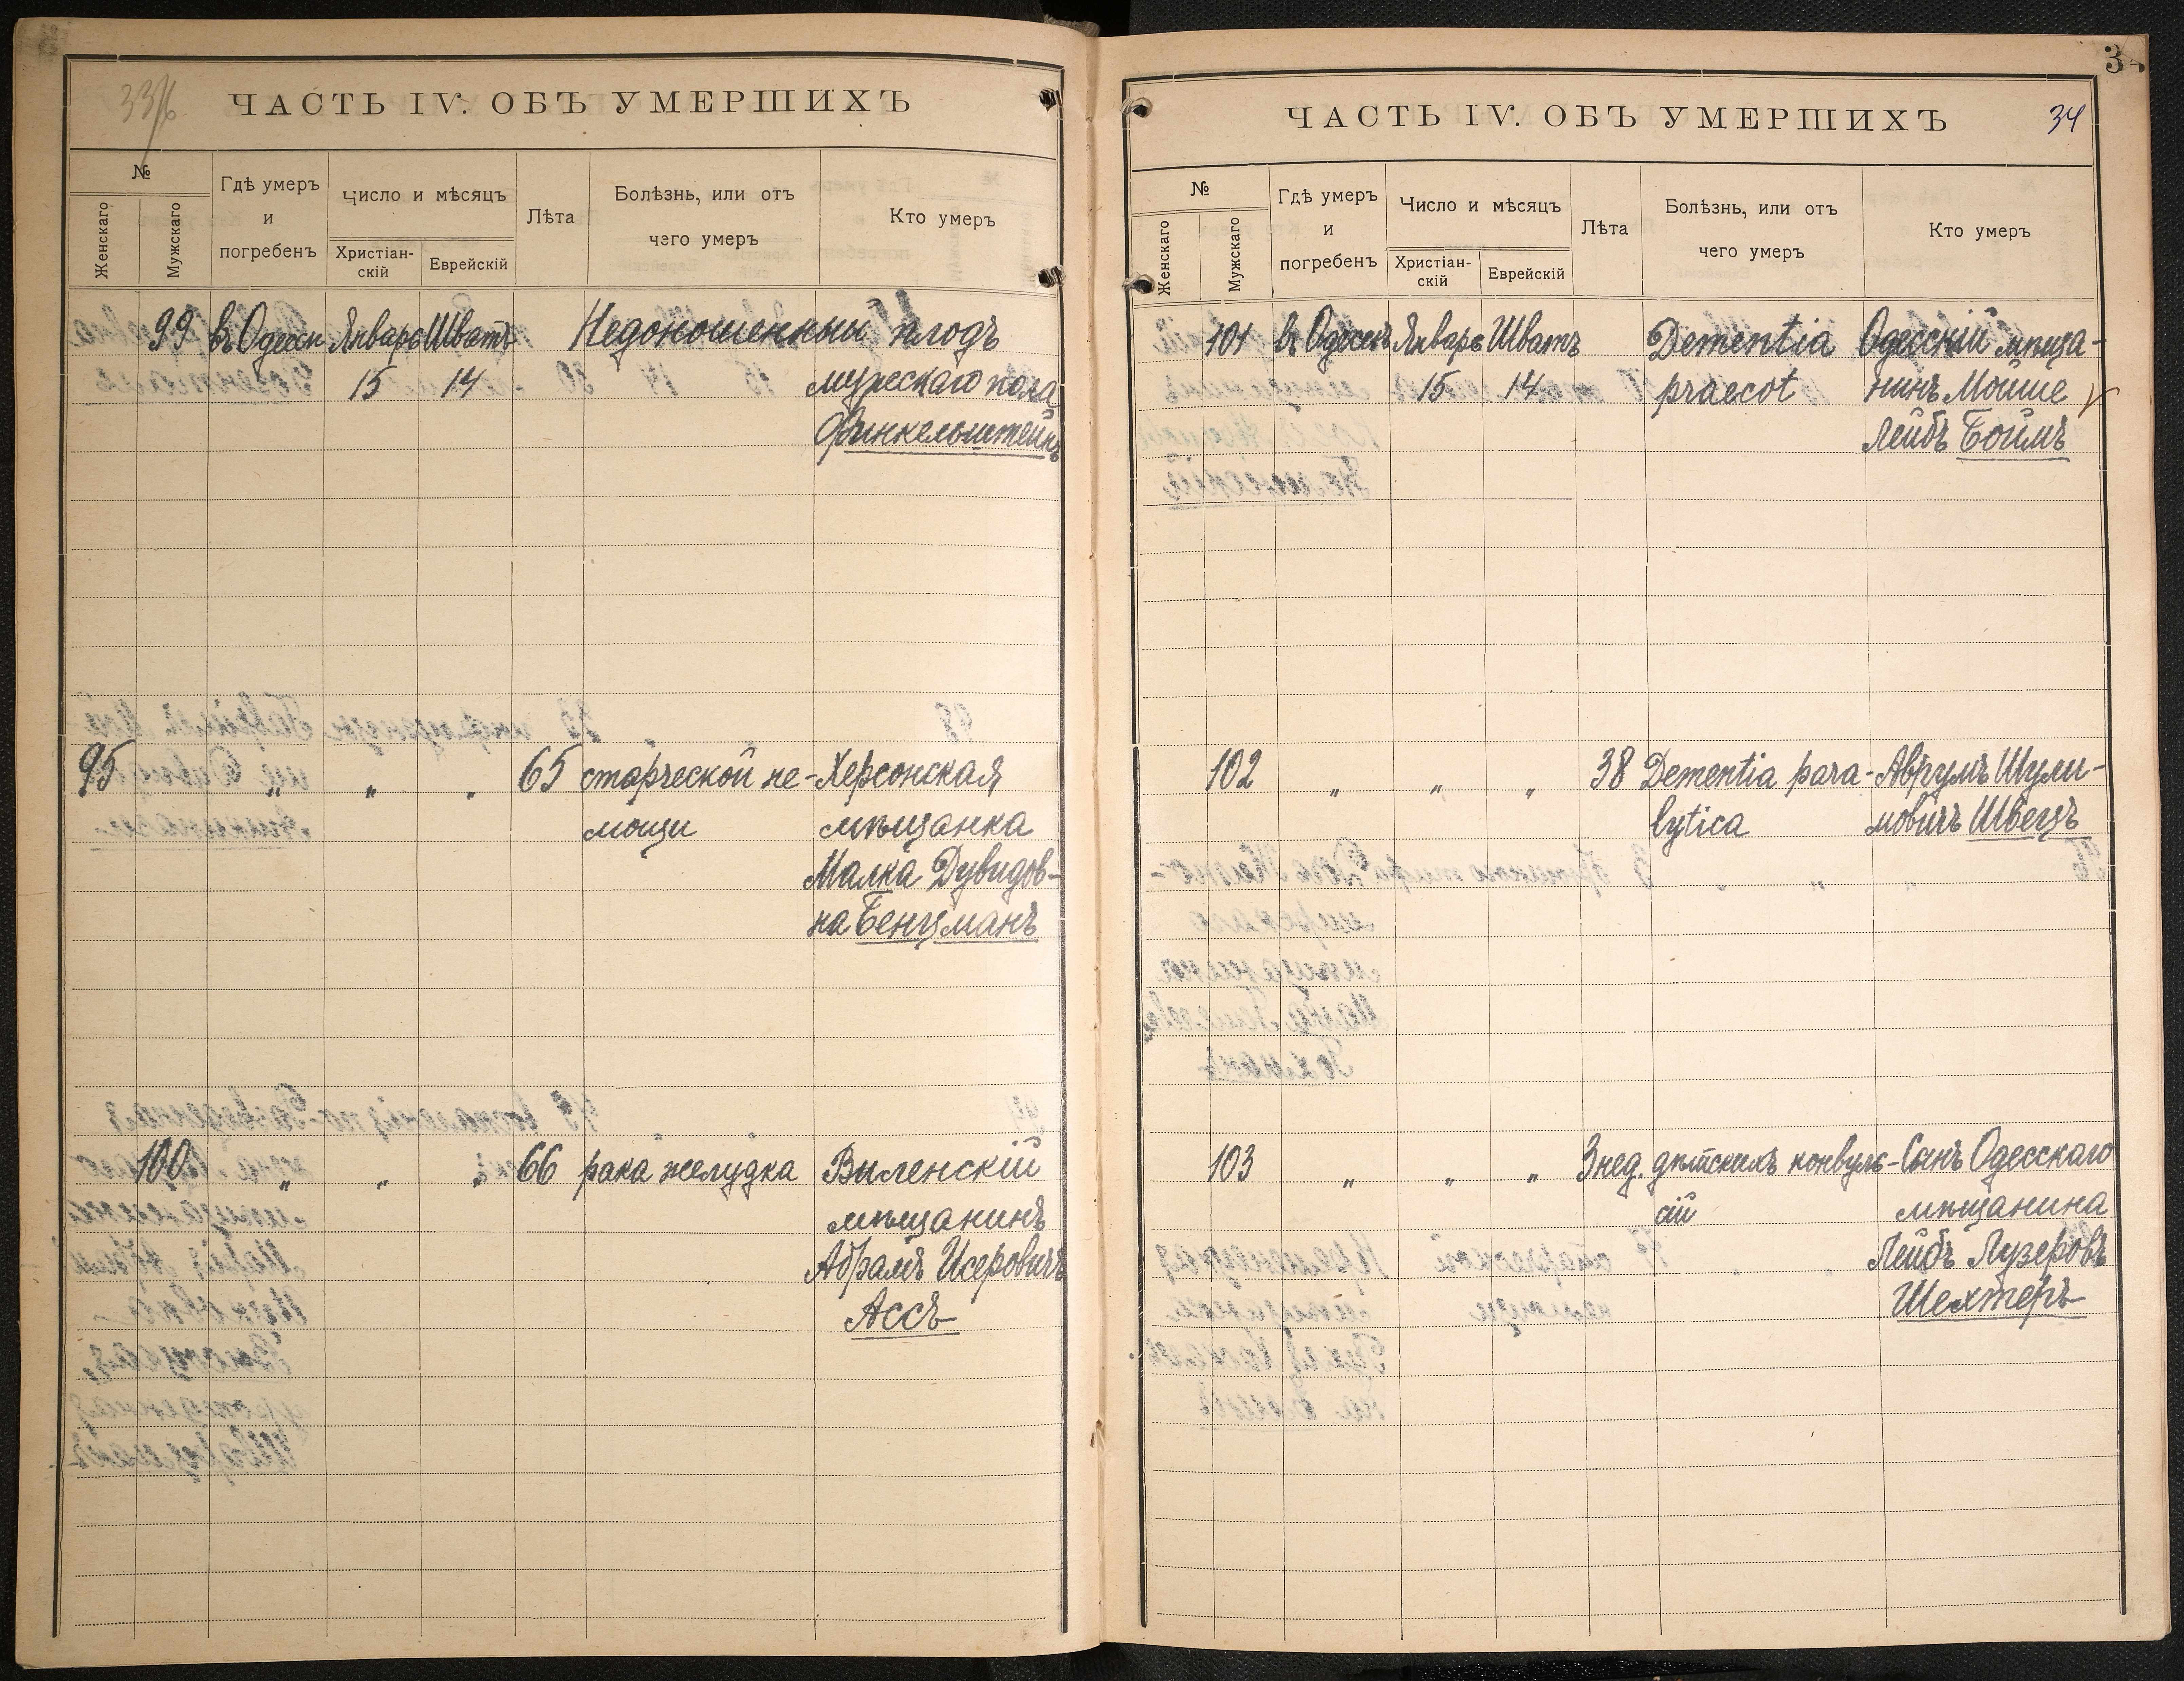 33/6
ЧАСТЬ IV. ОБЪ УМЕРШИХЪ
№
Женскаго
Мужскаго
Гдѣ умеръ
и
погребенъ
Число и мѣсяцъ
Христіан-
скій
Еврейскій
Лѣта
Болѣзнь, или отъ
чего умеръ
Кто умеръ
99 въ Одессѣ Январь Шватъ Недоношенный плодъ
15 14 мужескаго пола
Финкельштейнъ
95 „ „ „ 65 старческой не- Херсонская
мощи мѣщанка
Малка Дувидов-
на Бенцманъ
100 „ „ „ 66 рака желудка Виленскій
мѣщанинъ
Абрамъ Исеровичъ
Ассъ
3
ЧАСТЬ IV. ОБЪ УМЕРШИХЪ 34
№
Женскаго
Мужскаго
Гдѣ умеръ
и
погребенъ
Число и мѣсяцъ
Христіан-
скій
Еврейскій
Лѣта
Болѣзнь, или отъ
чего умеръ
Кто умеръ
101 въ Одессѣ Январь Шватъ Dementia Одесскій мѣща-
15 14 praecot нинъ Мойше
Лейбъ Боймъ
102 „ „ „ 38 Dementia para- Аврумъ Шули-
lytica мовичъ Швецъ
103 „ „ „ 3 нед. дѣтскихъ конвуль- Сынъ Одесскаго
сій мѣщанина
Лейбъ Лузеровъ
Шехтеръ